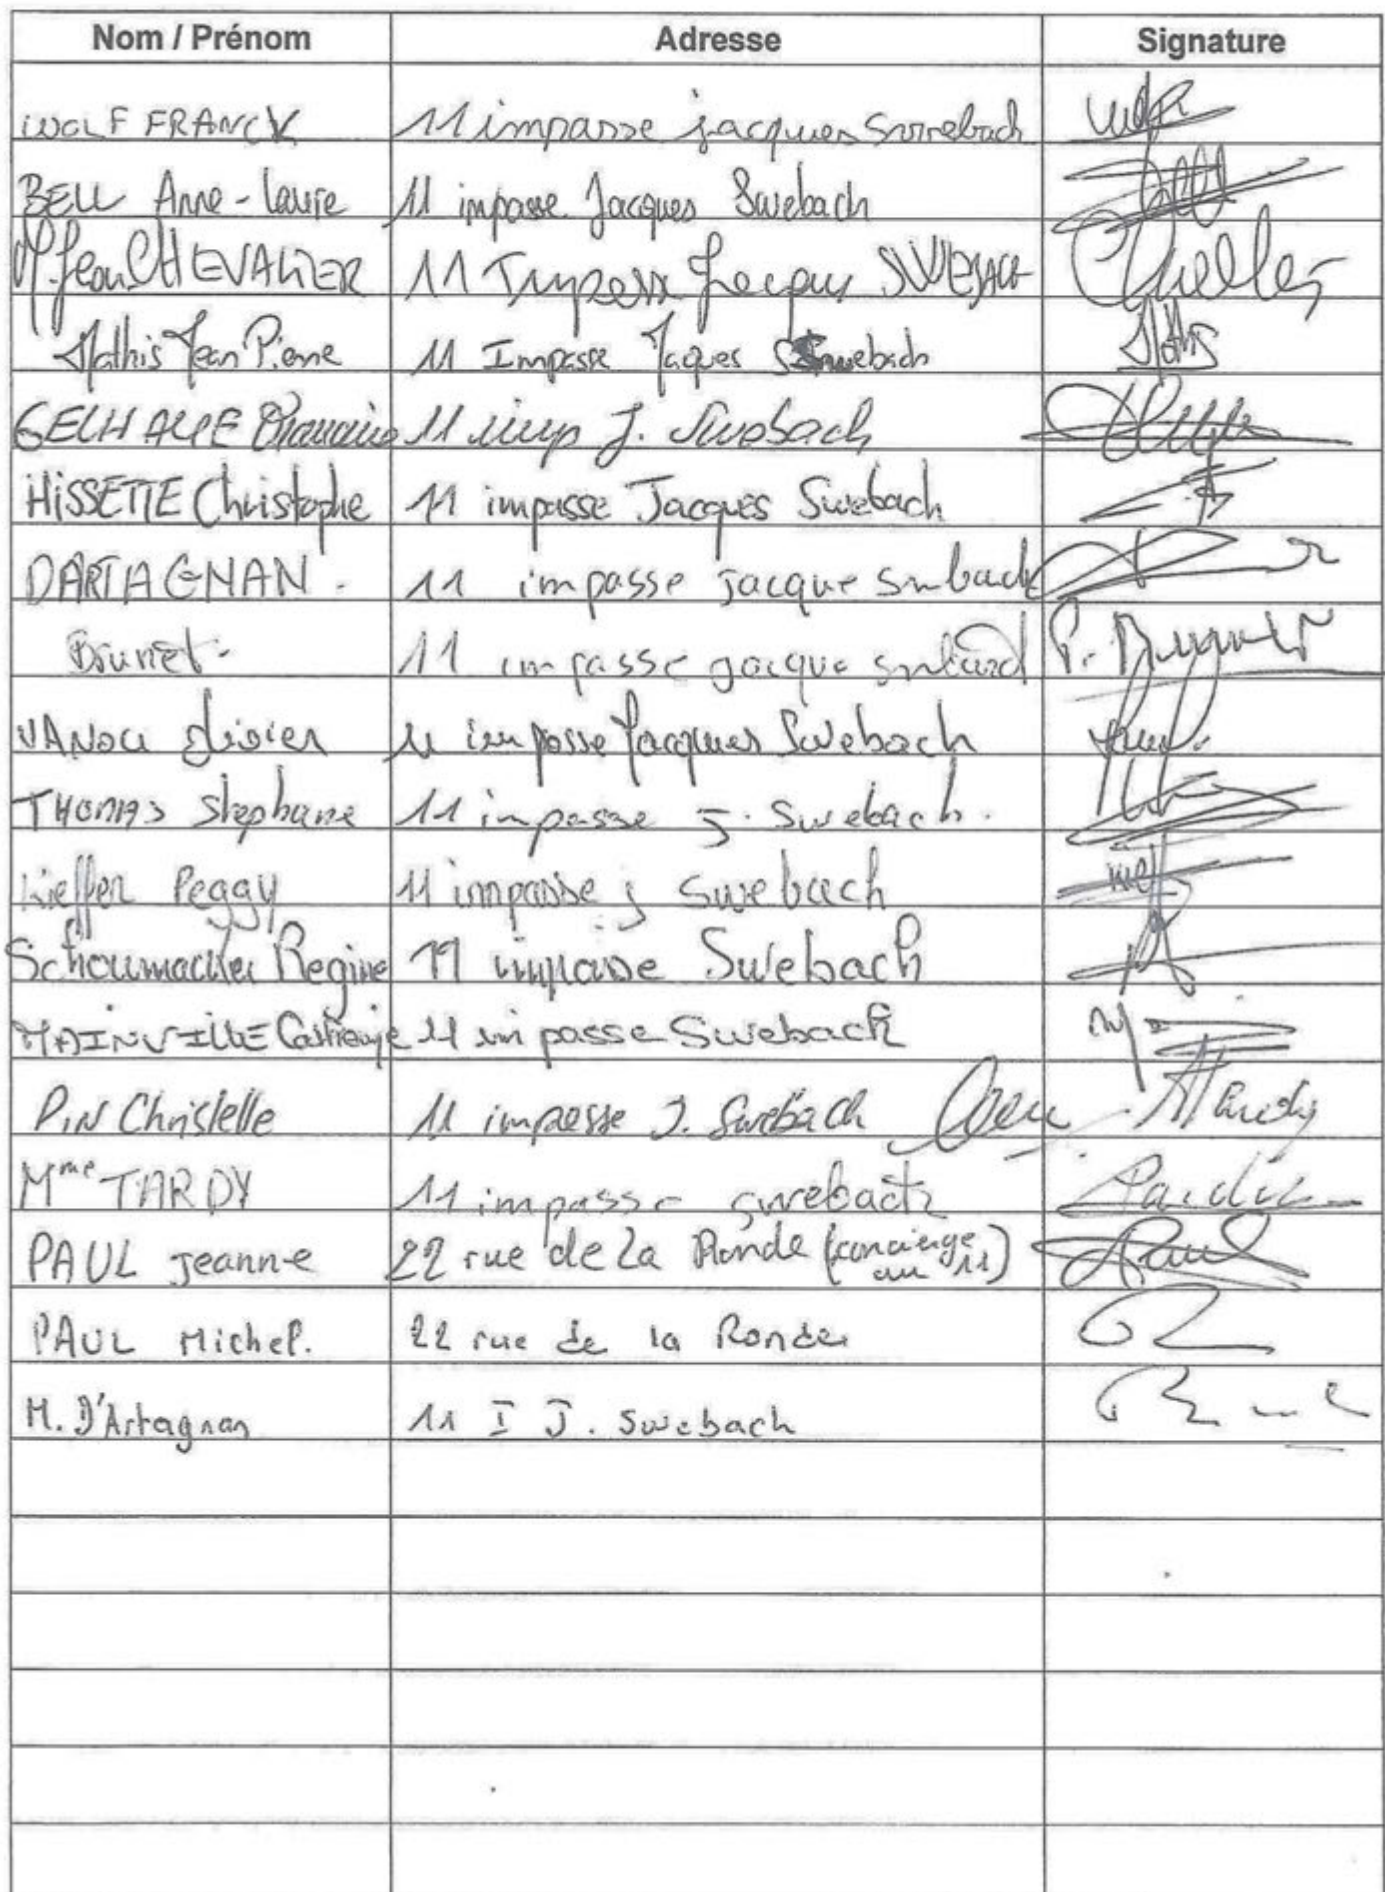 Nom / Prénom Adresse Signature
WOLF FRANCK 11 impasse jacques Swebach
BELL Anne-Laure 11 impasse Jacques Swebach
M. Jean CHEVALIER 11 Impasse Jacques SWEBACH
Mathis Jean Pierre 11 Impasse Jaques Swebach Mathis
11 imp J. Swebach
HISSETTE Christophe 11 impasse Jacques Swebach
DARTAGNAN. 11 impasse jacque
Brunet. 11 impasse jacque P. Brunet
11 impasse Jacques Swebach
THOMAS Stephane 11 impasse J. Swebach.
Kieffer Peggy 11 impasse j Swebach
Schoumacher Regine 11 impasse Swebach
MAINVILLE Catherine 11 impasse Swebach
PIN Christelle 11 impasse J. Swebach
Mme TARDY 11 impasse Swebach
PAUL Jeanne 22 rue de la Ronde (concierge au 11) Paul
PAUL Michel. 22 rue de la Ronde
M. D'Artagnan 11 I J. Swebach